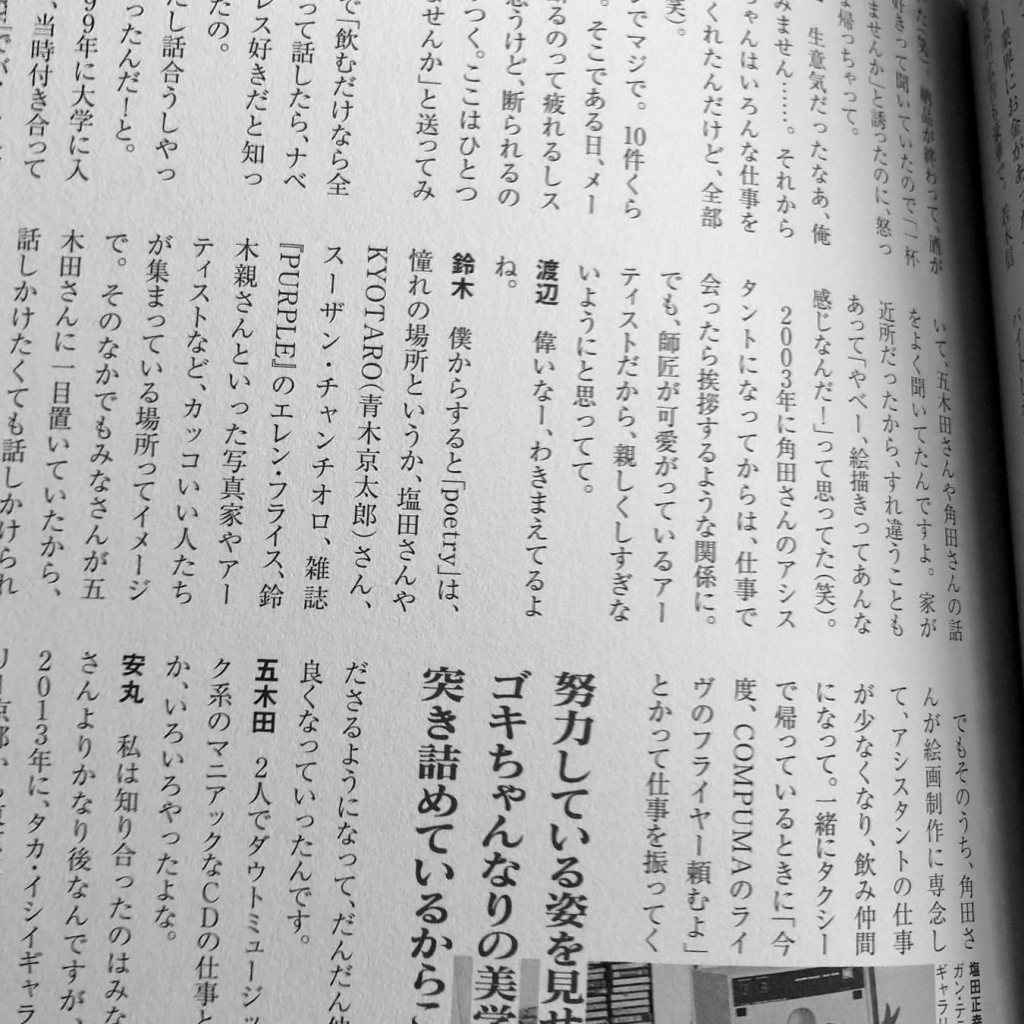 た(笑)。納品が終わって、酒が
好きって聞いていたので「一杯
ませんか」と誘ったのに、怒っ
な帰っちゃって。
生意気だったなあ、俺
みません……。それから
ちゃんはいろんな仕事を
くれたんだけど、全部
(笑)。
りでマジで。10件くら
。そこである日、メー
断るのって疲れるしス
思うけど、断られるの
つく。ここはひとつ
ませんか」と送ってみ
で「飲むだけなら全
って話したら、ナベ
レス好きだと知っ
たの。
だし話合うしやっ
ったんだ!と。
99年に大学に入
、当時付き合って
いて、五木田さんや角田さんの話
をよく聞いてたんですよ。家が
近所だったから、すれ違うことも
あって「やべー、絵描きってあんな
感じなんだ!」って思ってた(笑)。
2003年に角田さんのアシス
タントになってからは、仕事で
会ったら挨拶するような関係に。
でも、師匠が可愛がっているアー
ティストだから、親しくしすぎな
いようにと思ってて。
渡辺 偉いなー、わきまえてるよ
ね。
鈴木 僕からすると「poetry」は、
憧れの場所というか、塩田さんや
KYOTARO(青木京太郎)さん、
スーザン・チャンチオロ、雑誌
『PURPLE』のエレン・フライス、鈴
木親さんといった写真家やアー
ティストなど、カッコいい人たち
が集まっている場所ってイメージ
で。そのなかでもみなさんが五
木田さんに一目置いていたから、
話しかけたくても話しかけられ
でもそのうち、角田さ
んが絵画制作に専念し
て、アシスタントの仕事
が少なくなり、飲み仲間
になって。一緒にタクシー
で帰っているときに「今
度、COMPUMAのライ
ヴのフライヤー頼むよ」
とかって仕事を振ってく
努力している姿を見せ
ゴキちゃんなりの美学
突き詰めているからこ
ださるようになって、だんだん仲
良くなっていったんです。
五木田 2人でダウトミュージッ
ク系のマニアックなCDの仕事と
か、いろいろやったよな。
安丸 私は知り合ったのはみな
さんよりかなり後なんですが、
2013年に、タカ・イシイギャラ
リー京都
塩田正幸
ガン・テ
ギャラリ